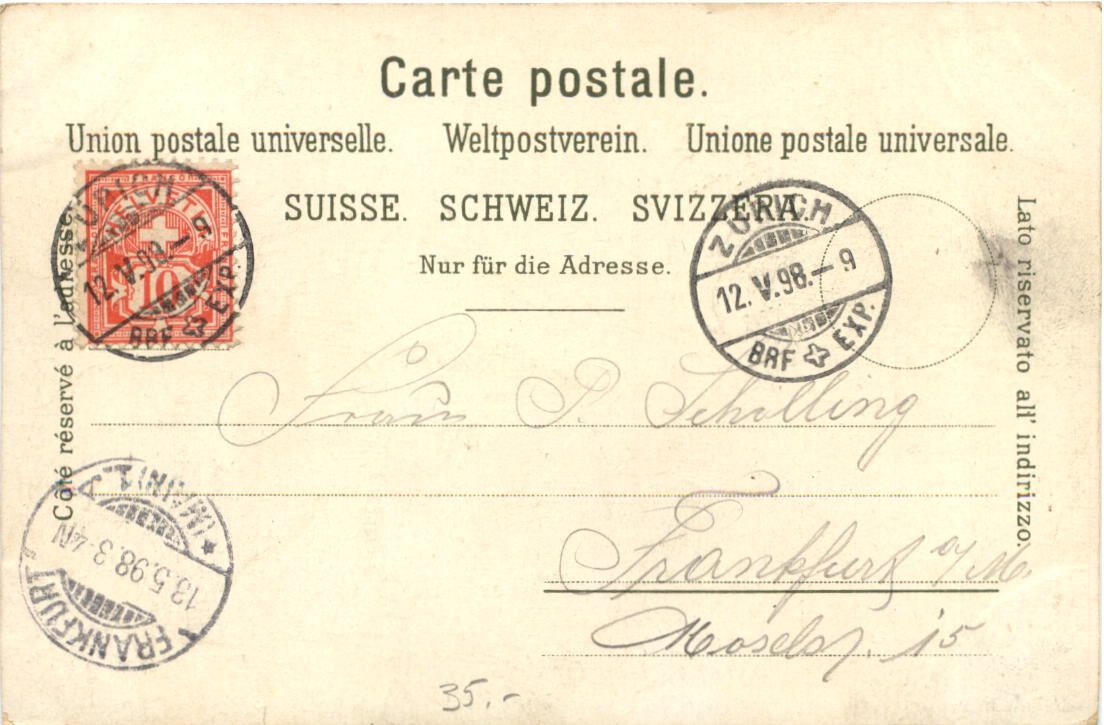 Carte postale.
Union postale universelle. Weltpostverein. Unione postale universale.
SUISSE. SCHWEIZ. SVIZZERA
Nur für die Adresse.
Côté réservé à l'adresse.
Lato riservato all' indirizzo.
FRANCO
HELVETIA
10
ZÜRICH
12.V.98.–9
BRF EXP.
ZÜRICH
12.V.98.–9
BRF EXP.
Frau P. Schilling
Frankfurt a/M.
Moselstr. 15
FRANKFURT (MAIN) 1.
13.5.98.3-4N
35.-